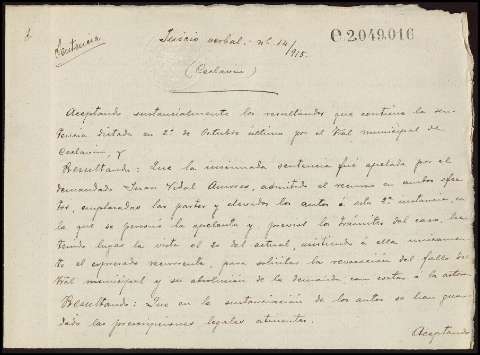 Sentencia
Juicio verbal - nº 14/915.
C2.049.016
(Ceclavin)
Aceptando sustancialmente los resultandos que contiene la sen-
tencia dictada en 2 de Octubre último por el tribl municipal de
Ceclavin, y
Resultando: Que la insinuada sentencia fué apelada por el
demandado Juan Vidal Amores, admitido el recurso en ambos efec-
tos, emplazadas las partes y elevados los autos á esta 2ª instancia, en
la que se personó la apelante y previos los trámites del caso, ha
tenido lugar la vista el 20 del actual, asistiendo á ella unicamen-
te el expresado recurrente, para solicitar la revocación del fallo del
tribl municipal y su absolución de la demanda con costas á la actora
Resultando: Que en la sustanciación de los autos se han guar-
dado las prescripciones legales atinentes.
Aceptando